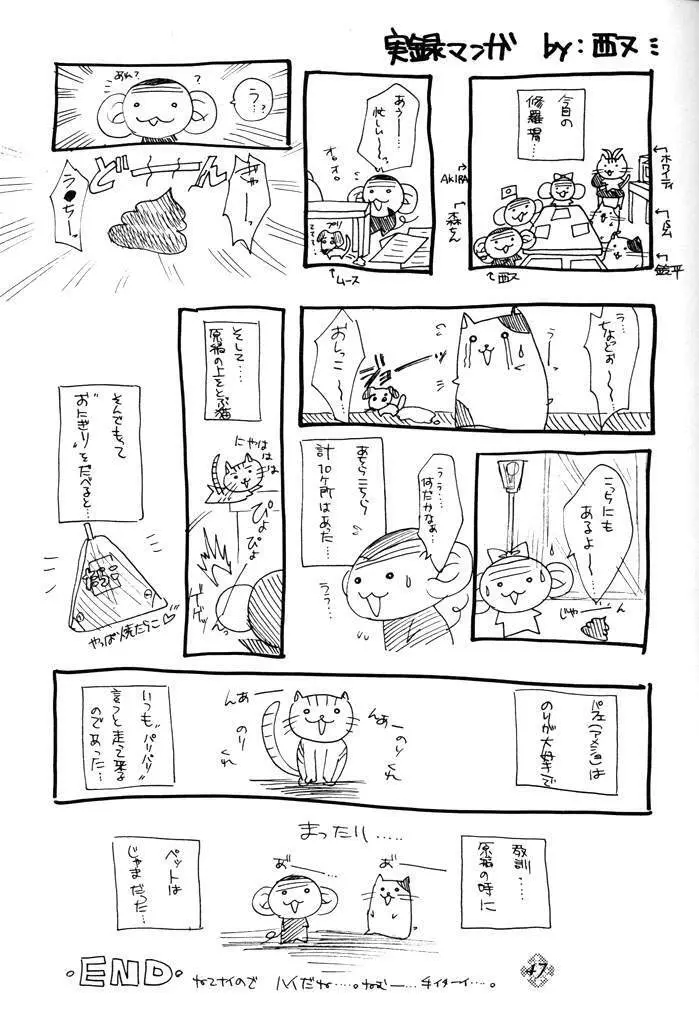 実録マンガ by:西ヌミ
今日の
修羅場…
ホワイティ
AKIRA
森さん
西ヌ
あう——
忙しい〜〜っ
オロオロ
プリ
ムース
あれ?
?
う…?
ぎゃーーっ
どーーん
う●ちーっ
う…
などぉ〜
おしっこ〜〜
こっちにも
あるよ〜〜
じゃーん
うぅ…
何だかなぁ…
うぅ…
あちらこちら
計10ヶ所はあった…
そして…
原稿の上をとぶ猫
にゃははは
ぴょ
ぴょ
ぴょ
ゲゲッ
そんでもって
"おにぎり"をたべると…
やっぱ焼たらこ♡
パフェ(アメショ)は
のりが大好きで
んあー
のりくれ
んあー
のりくれ
いつも"パリパリ"
言うと走って来る
のであった…
まったり……
教訓……
原稿の時に
ペットは
じゃまだった…
あ゛ー
あ゛ー
・END・
ねてナイので ハイだね……。ねむー…。手イターイ…。
47